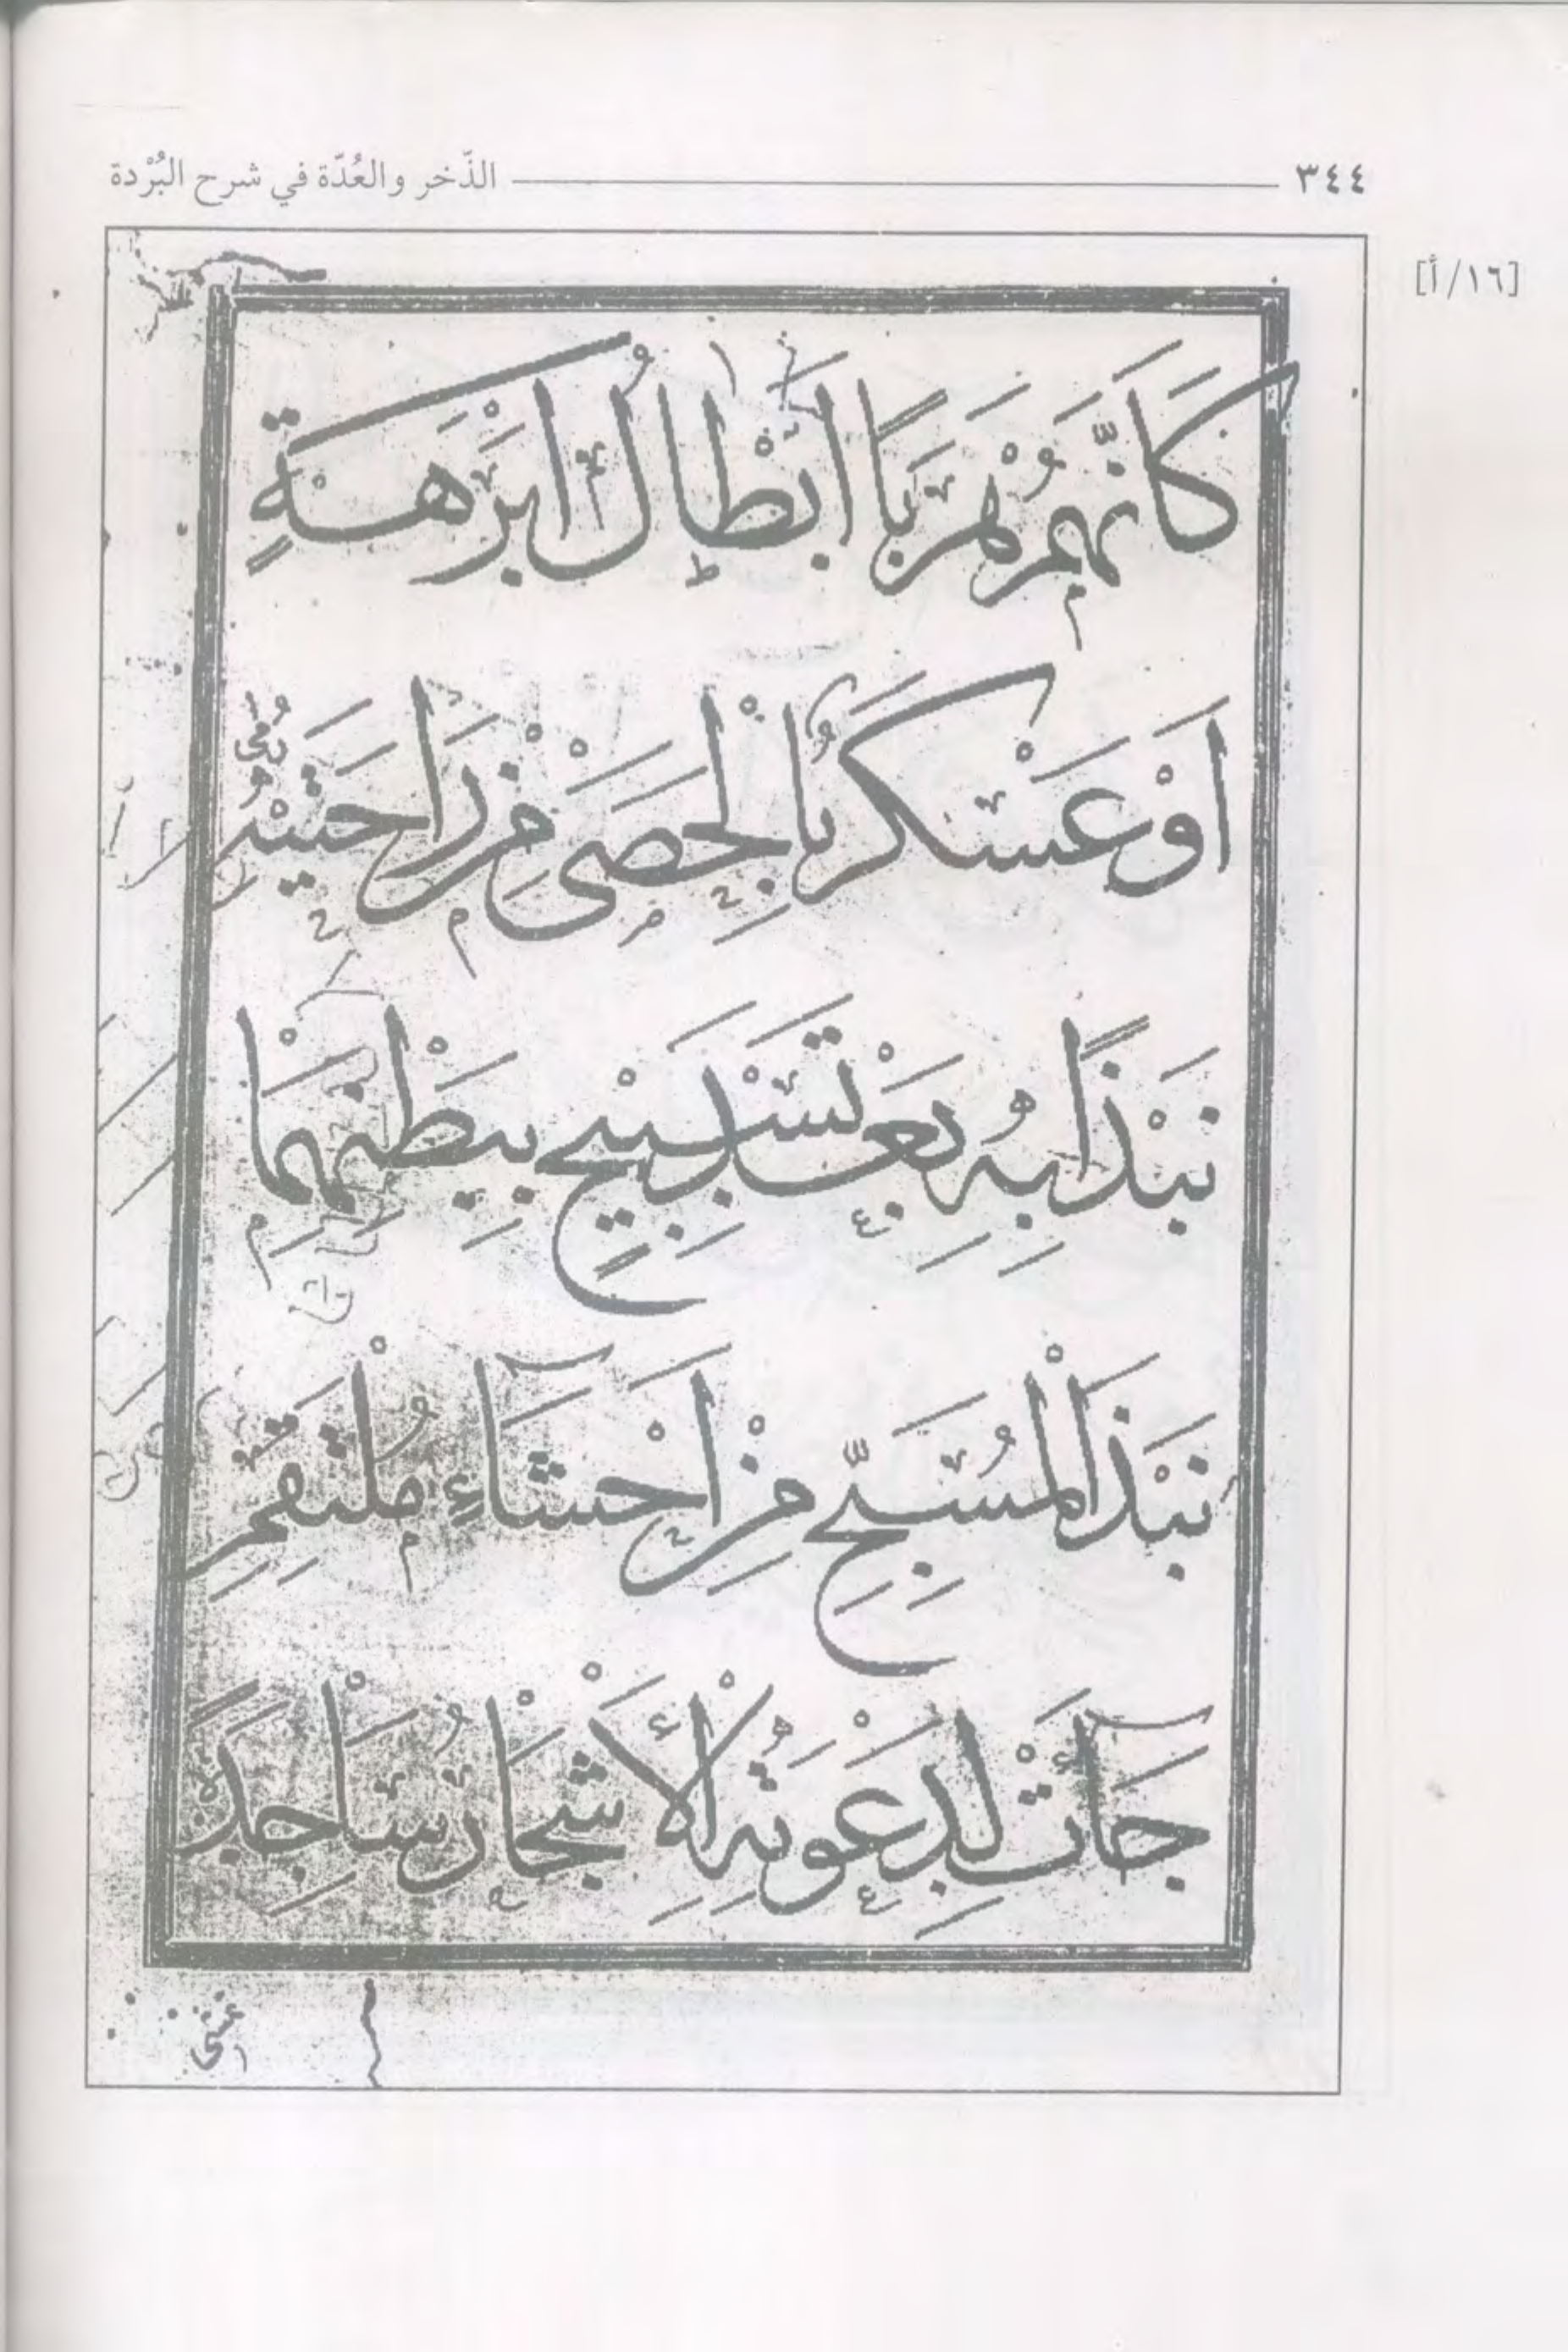 ٣٤٤ الذّخر والعُدّة في شرح البُرْدة
[١٦/أ]
كَاَنَّهُمْ هَرَبًا اَبْطَالُ اَبْرَهَةٍ
اَوْ عَسْكَرٌ بِالْحَصٰى مِنْ رَاحَتَيْهِ رُمِى
نَبْذًا بِهِ بَعْدَ تَسْبِيْحٍ بِبَطْنِهِمَا
نَبْذَ الْمُسَبِّحِ مِنْ اَحْشَآءِ مُلْتَقِمِ
جَآءَتْ لِدَعْوَتِهِ الْاَشْجَارُ سَاجِدَةً